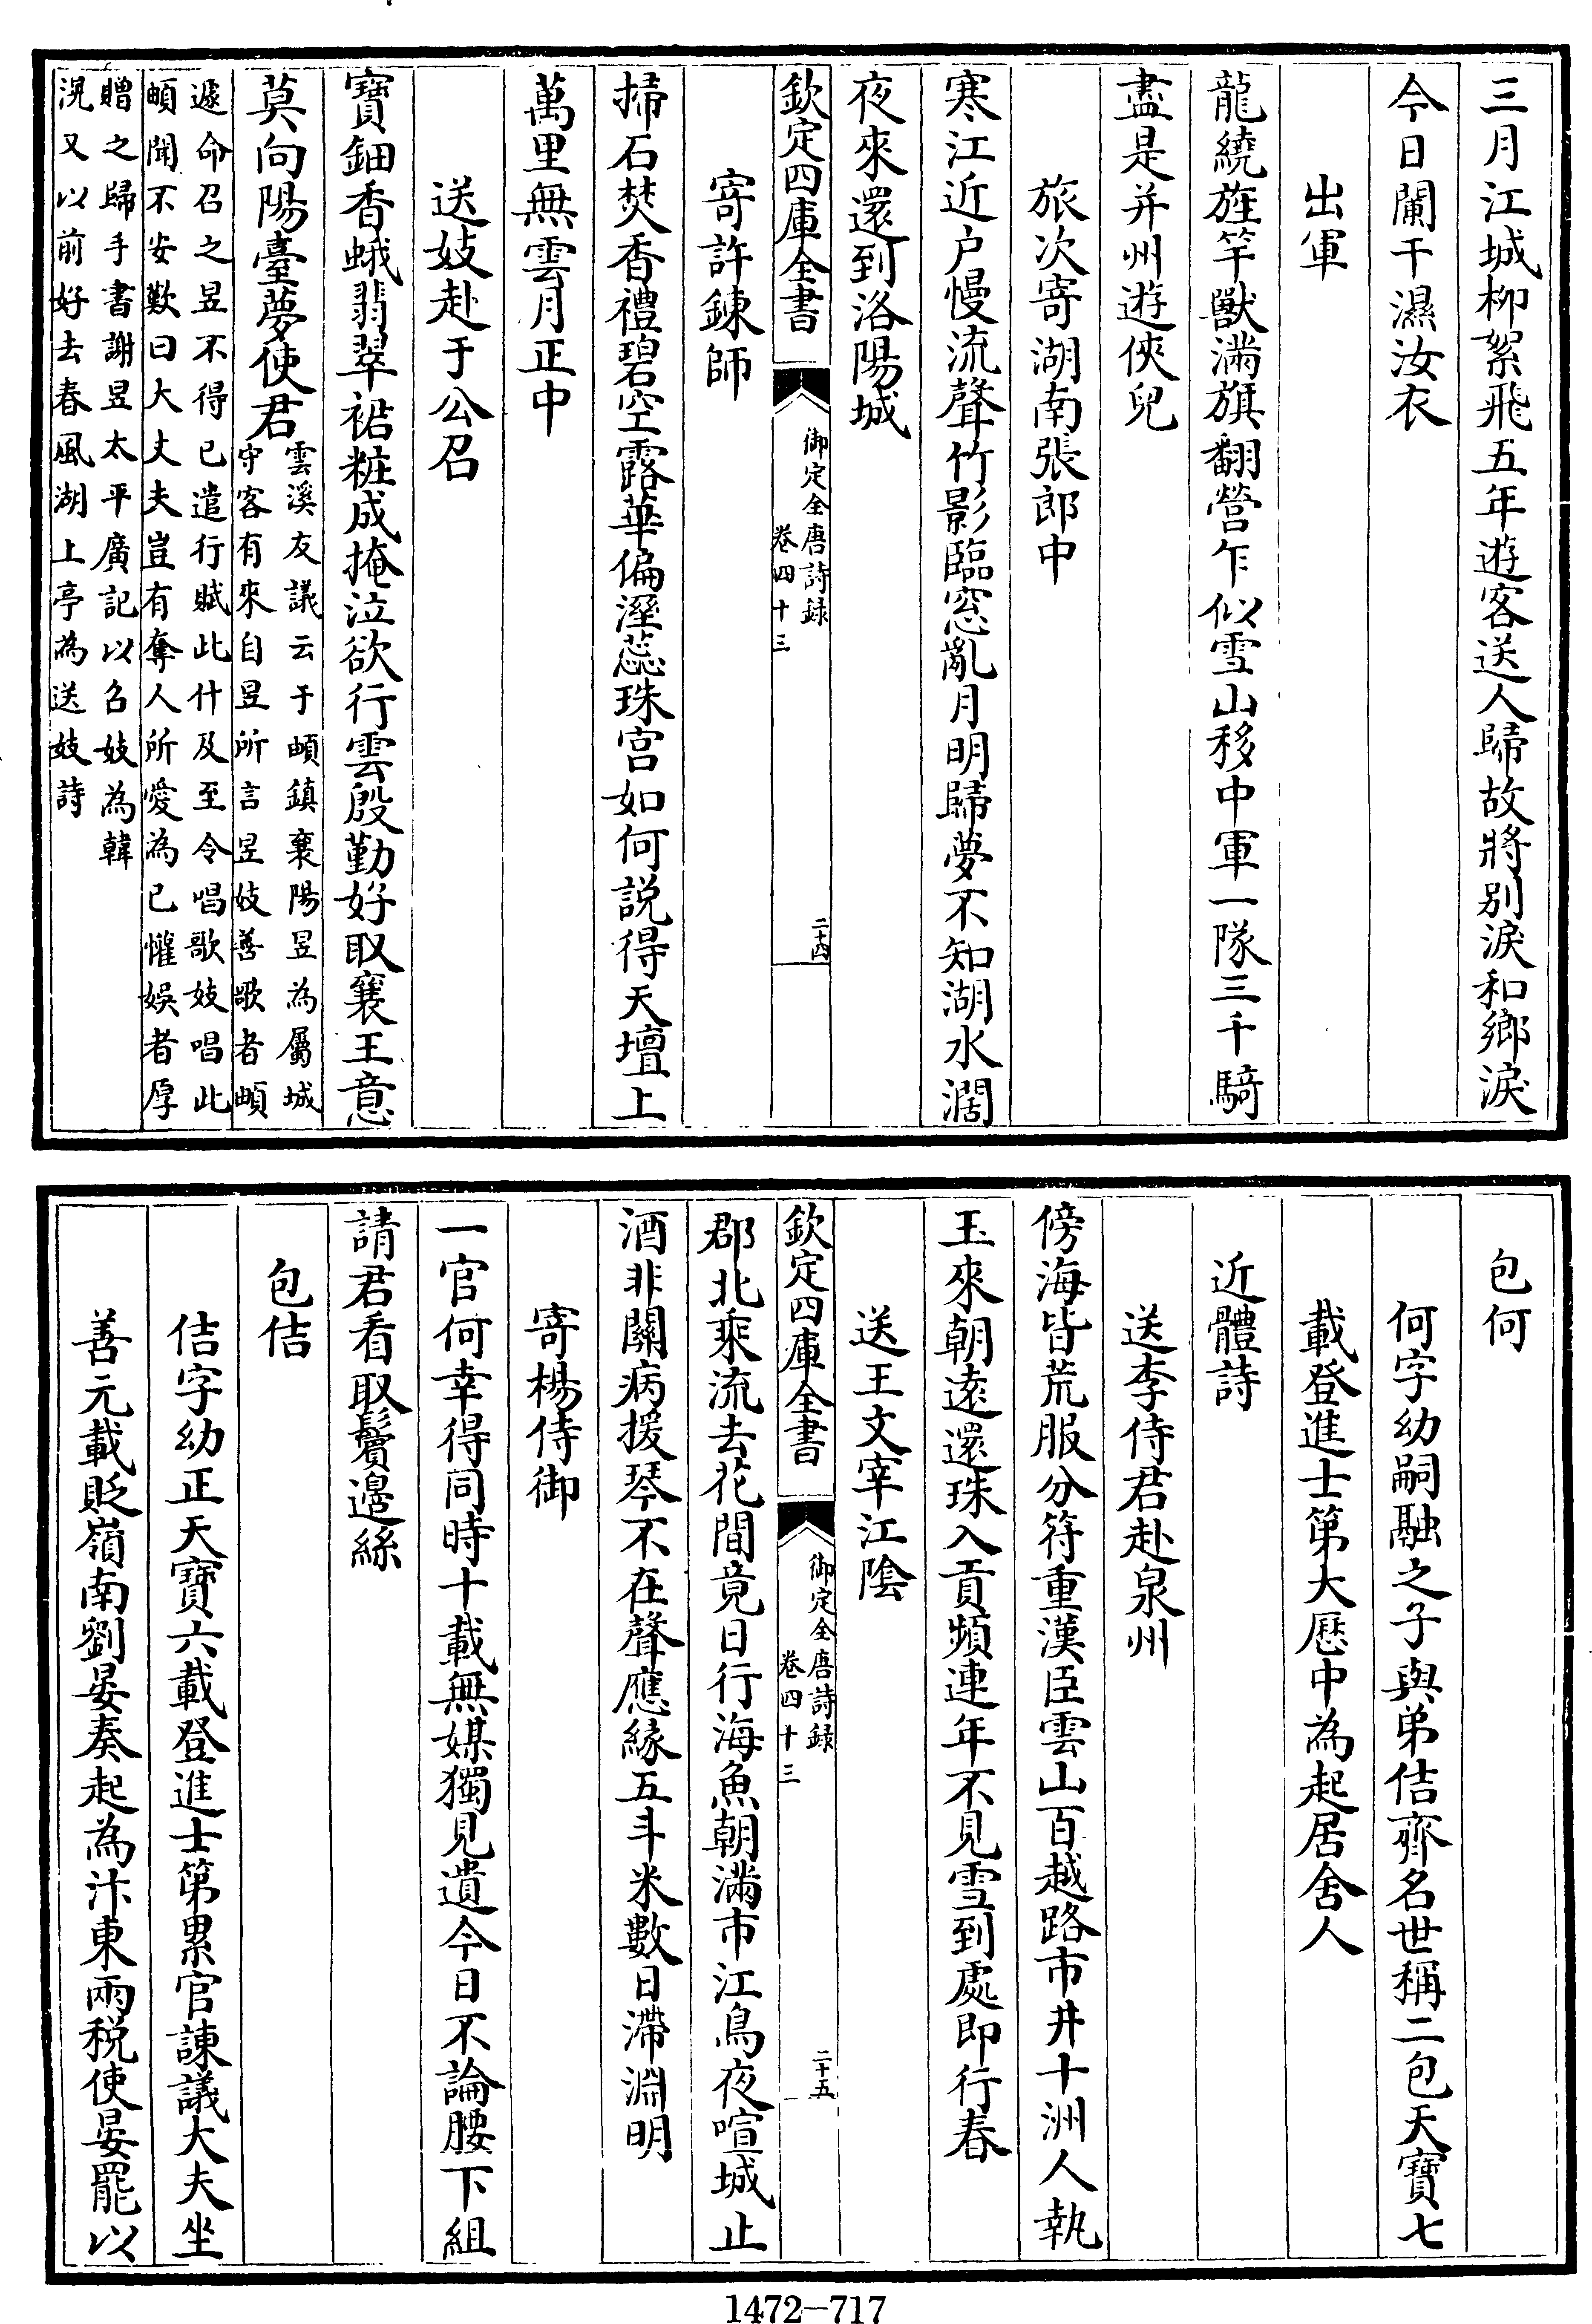 三月江城柳絮飛五年遊客送人歸故將别淚和鄉淚
今日闌干濕汝衣
出軍
龍繞旌竿獸滿旗翻營乍似雪山移中軍一隊三千騎
盡是并州遊俠兒
旅次寄湖南張郎中
寒江近户慢流聲竹影臨窓亂月明歸夢不知湖水濶
夜來還到洛陽城
欽定四庫全書
御定全唐詩録
卷四十三
二十四
寄許鍊師
掃石焚香禮碧空露華偏溼蕊珠宫如何説得天壇上
萬里無雲月正中
送妓赴于公召
寶鈿香蛾翡翠裙粧成掩泣欲行雲殷勤好取襄王意
莫向陽臺夢使君
雲溪友議云于頔鎮襄陽昱為屬城
守客有來自昱所言昱妓善歌者頔
遽命召之昱不得已遣行賦此什及至令唱歌妓唱此
頔聞不安歎曰大丈夫豈有奪人所愛為已懽娯者厚
贈之歸手書謝昱太平廣記以名妓為韓
滉又以前好去春風湖上亭為送妓詩
包何
何字幼嗣融之子與弟佶齊名世稱二包天寶七
載登進士第大厯中為起居舍人
近體詩
送李侍君赴泉州
傍海皆荒服分符重漢臣雲山百越路市井十洲人執
玉來朝遠還珠入貢頻連年不見雪到處即行春
送王文宰江隂
欽定四庫全書
御定全唐詩録
卷四十三
二十五
郡北乘流去花間竟日行海魚朝滿市江鳥夜喧城止
酒非關病援琴不在聲應緣五斗米數日滯淵明
寄楊侍御
一官何幸得同時十載無媒獨見遺今日不論腰下組
請君看取鬢邉絲
包佶
佶字幼正天寶六載登進士第累官諫議大夫坐
善元載貶嶺南劉晏奏起為汴東兩税使晏罷以
1472-717